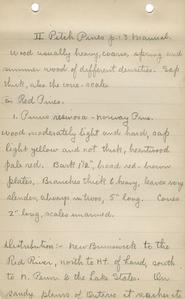 II Pitch Pines p. 3 Manual.
Wood usually heavy, coarse, spring and
summer wood of different densities. Sap
thick, also the cone-scales
(a) Red Pines.
1. Pinus resinosa - Norway Pine.
Wood moderately light and hard, sap
light yellow and not thick, heartwood
pale red. Bark 1½", broad red-brown
plates. Branches thick & heavy, leaves very
slender, always in twos, 5" long. Cones
2" long, scales unarmed.
Distribution:- New Brunswick to the
Red River, north to Ht. of land, south
to N. Penn & the Lake States. On
sandy plains of Ontario it reaches it